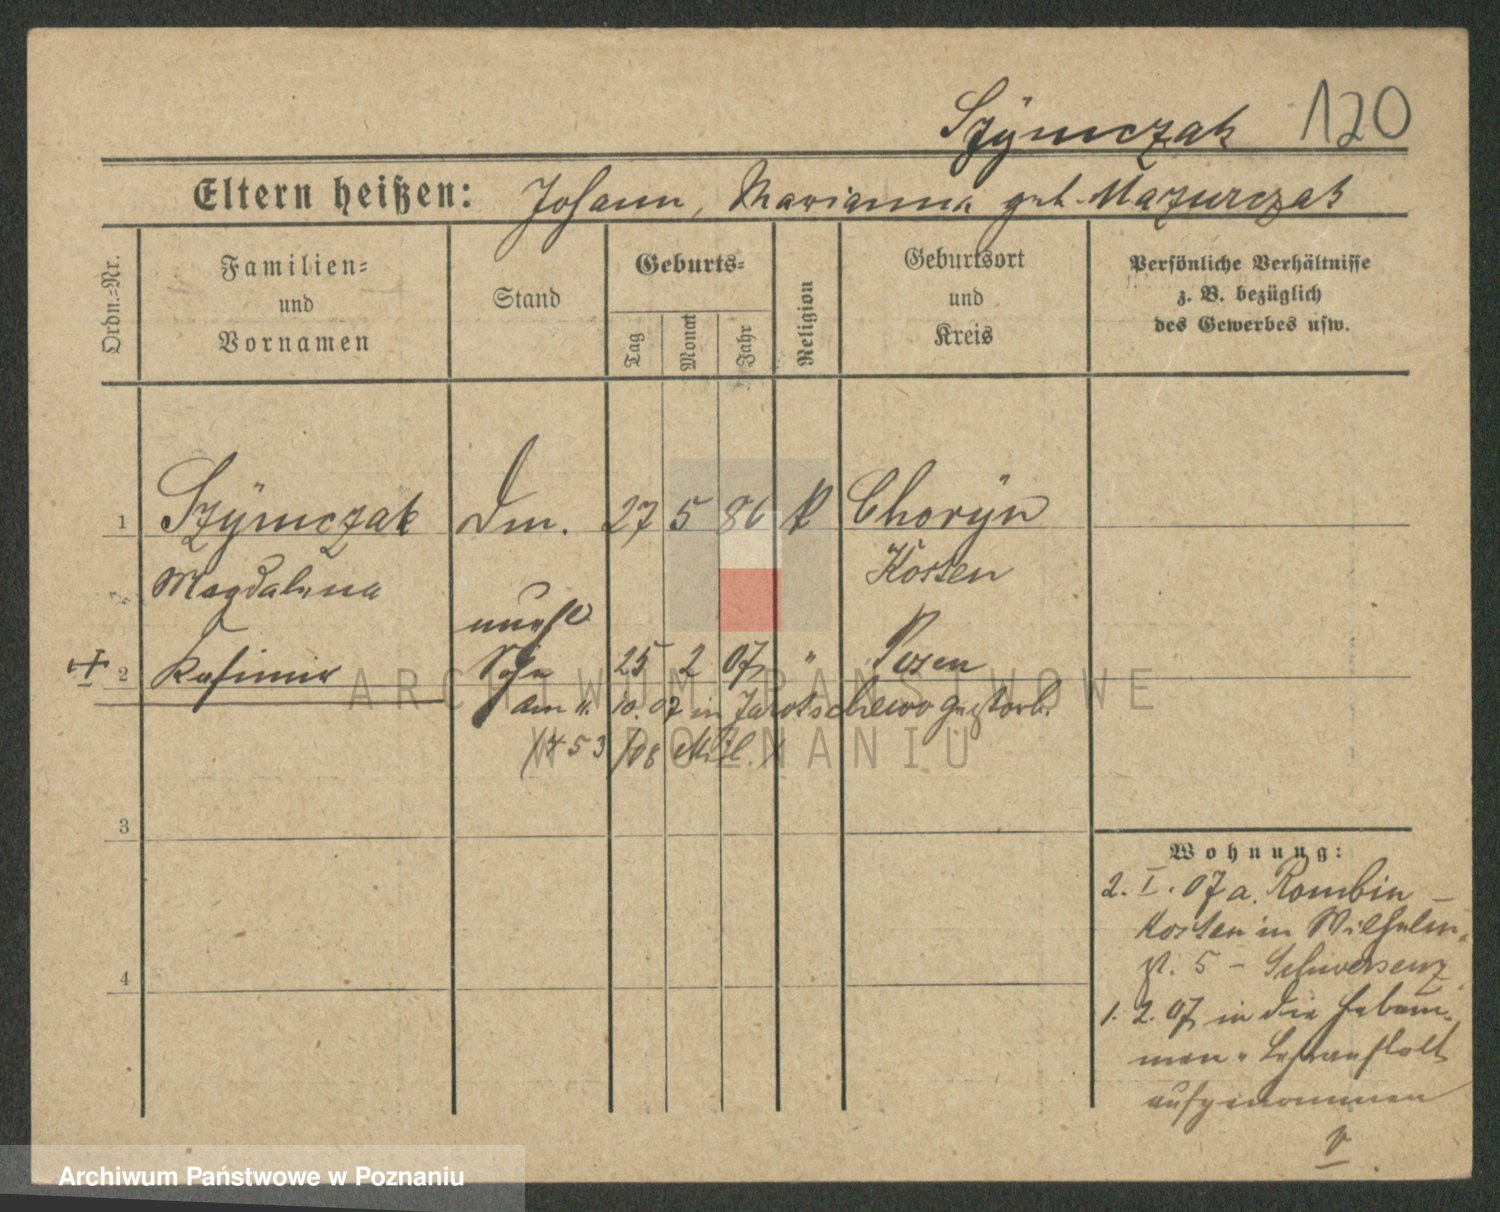 Szÿmczak 120
Eltern heißen: Johann, Marianna geb. Mazurczak
Ordn.=Nr.
Familien=
und
Vornamen
Stand
Geburts=
Tag
Monat
Jahr
Religion
Geburtsort
und
Kreis
Persönliche Verhältnisse
z. B. bezüglich
des Gewerbes usw.
1 Szÿmczak Dm. 27 5 86 k Chorÿn
Magdalena Kosten
unehl.
2 Kasimir Sohn 25 2 07 " Posen
am 11. 10. 07 in Jarotschewo gestorb.
/453/08 Mil.
3
4
Wohnung:
2. I. 07 a. Rombin –
Kosten in Wilhelm-
st. 5 – Schwersenz
1. 2. 07 in die Hebam-
men-Lehranstalt
aufgenommen
ARCHIWUM PAŃSTWOWE
W POZNANIU
Archiwum Państwowe w Poznaniu